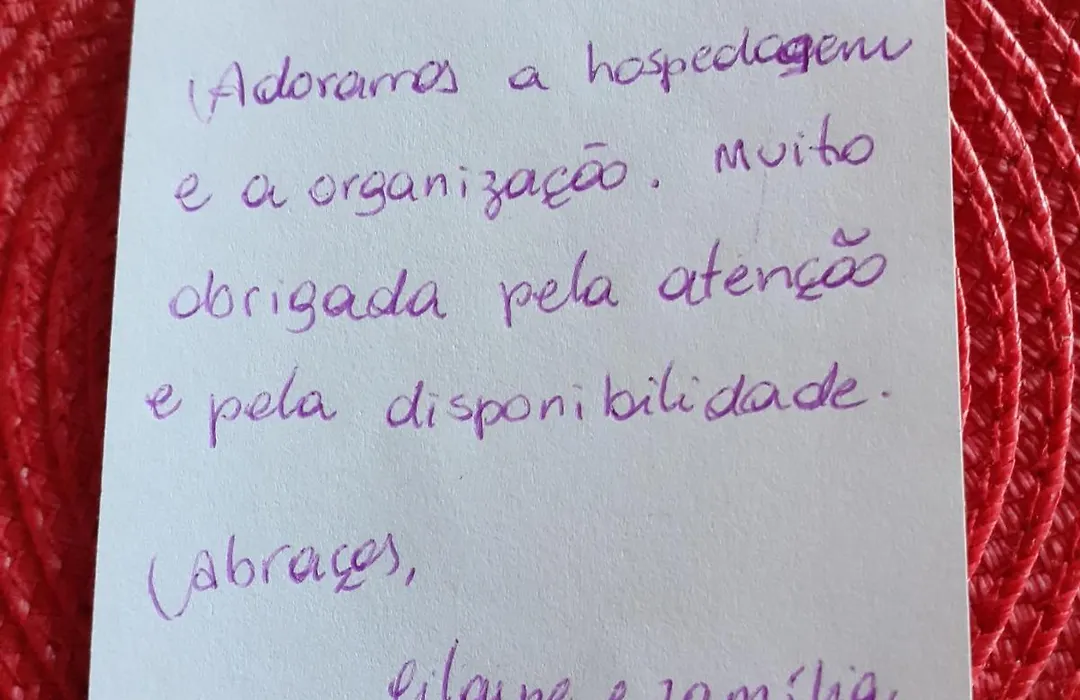 Adoramos a hospedagem
e a organização. Muito
obrigada pela atenção
e pela disponibilidade.
Abraços,
e família.